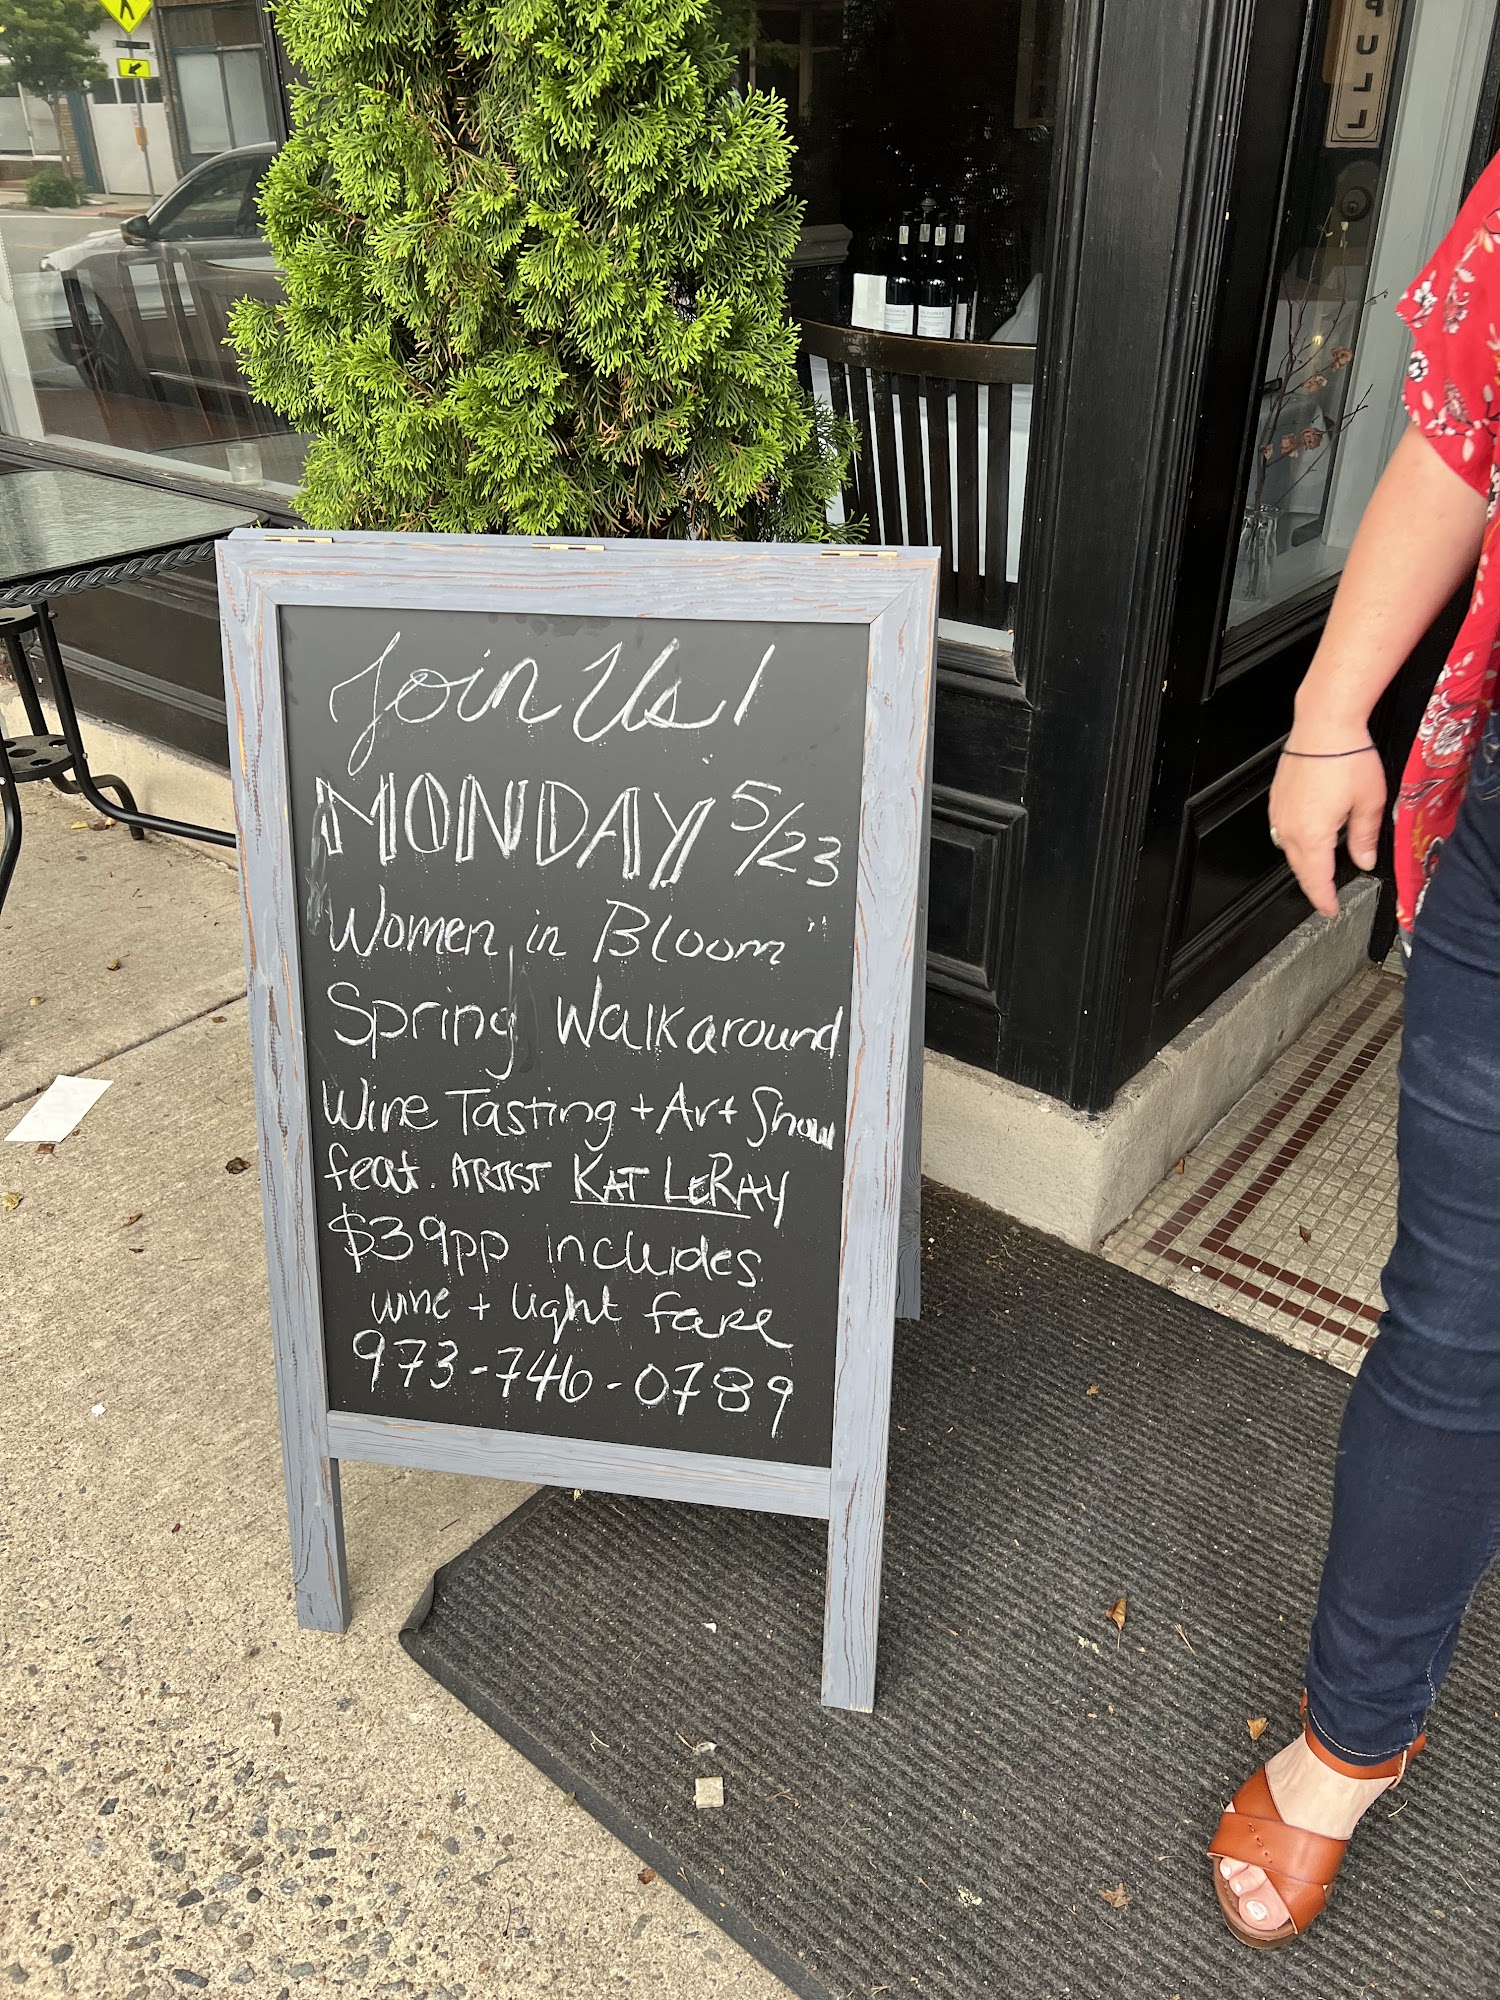 PULL
Join Us!
MONDAY 5/23
"Women in Bloom"
Spring Walkaround
Wine Tasting + Art Show
feat. ARTIST KAT LERAY
$39pp includes
wine + light fare
973-746-0789